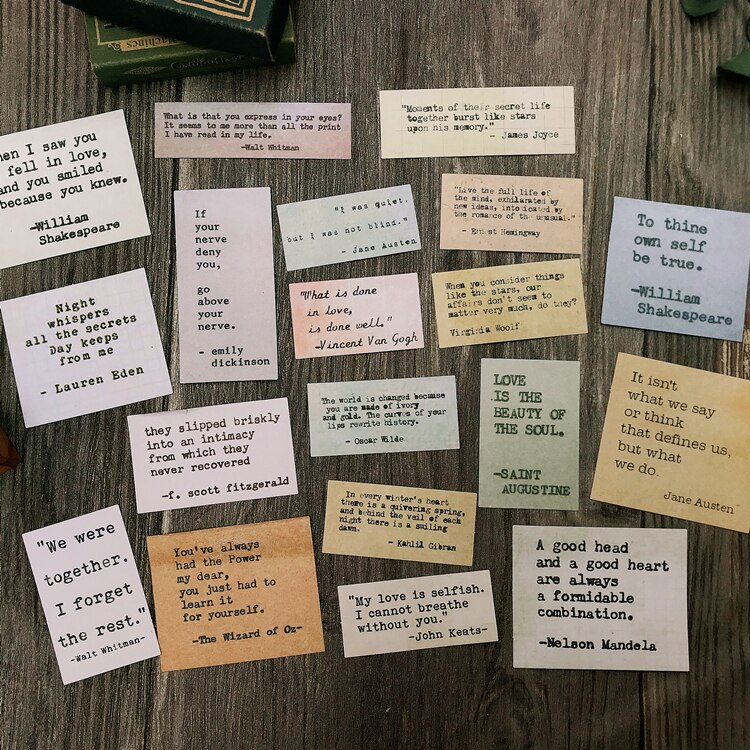 achines
What is that you express in your eyes?
It seems to me more than all the print
I have read in my life.
-Walt Whitman
"Moments of their secret life
together burst like stars
upon his memory."
- James Joyce
en I saw you
fell in love,
and you smiled
because you knew.
-William
Shakespeare
If
your
nerve
deny
you,
go
above
your
nerve.
- emily
dickinson
"I was quiet,
but I was not blind."
- Jane Austen
"Live the full life of
the mind, exhilarated by
new ideas, intoxicated by
the romance of the unusual."
- Ernest Hemingway
To thine
own self
be true.
-William
Shakespeare
Night
whispers
all the secrets
Day keeps
from me
- Lauren Eden
"What is done
in love,
is done well."
-Vincent Van Gogh
When you consider things
like the stars, our
affairs don't seem to
matter very much, do they?
Virginia Woolf
they slipped briskly
into an intimacy
from which they
never recovered
-f. scott fitzgerald
The world is changed because
you are made of ivory
and gold. The curves of your
lips rewrite history.
- Oscar Wilde
LOVE
IS THE
BEAUTY OF
THE SOUL.
-SAINT
AUGUSTINE
It isn't
what we say
or think
that defines us,
but what
we do.
Jane Austen
"We were
together.
I forget
the rest."
-Walt Whitman-
You've always
had the Power
my dear,
you just had to
learn it
for yourself.
-The Wizard of Oz-
In every winter's heart
there is a quivering spring,
and behind the veil of each
night there is a smiling
dawn.
- Kahlil Gibran
"My love is selfish.
I cannot breathe
without you."
-John Keats-
A good head
and a good heart
are always
a formidable
combination.
-Nelson Mandela